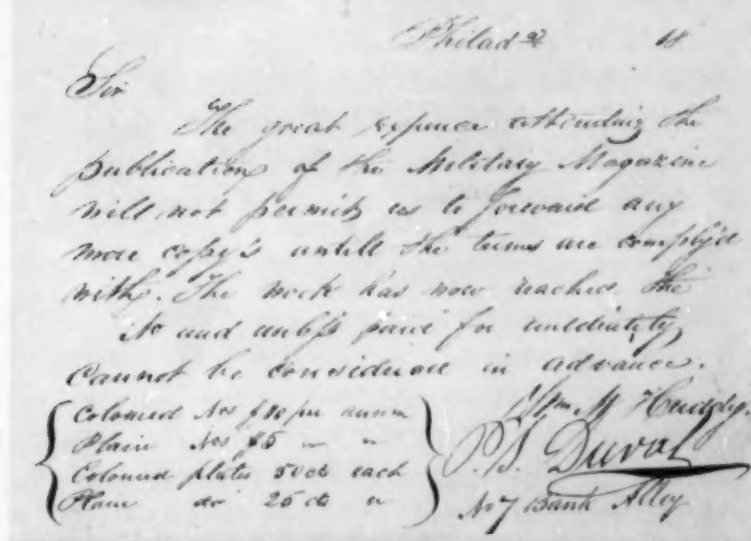 Philada 18
Sir
The great expence attending the
publication of the Military Magazine
will not permit us to forward any
more copy's untill the terms are comply'd
with. The work has now reached the
No and unless paid for imediately,
cannot be considered in advance.
Coloured Nos $10 per annum
Plain Nos $5 " "
Coloured plates 50 cts each
Plain do 25 cts "
Wm M Huddy,
P. S. Duval
No 7 Bank Alley